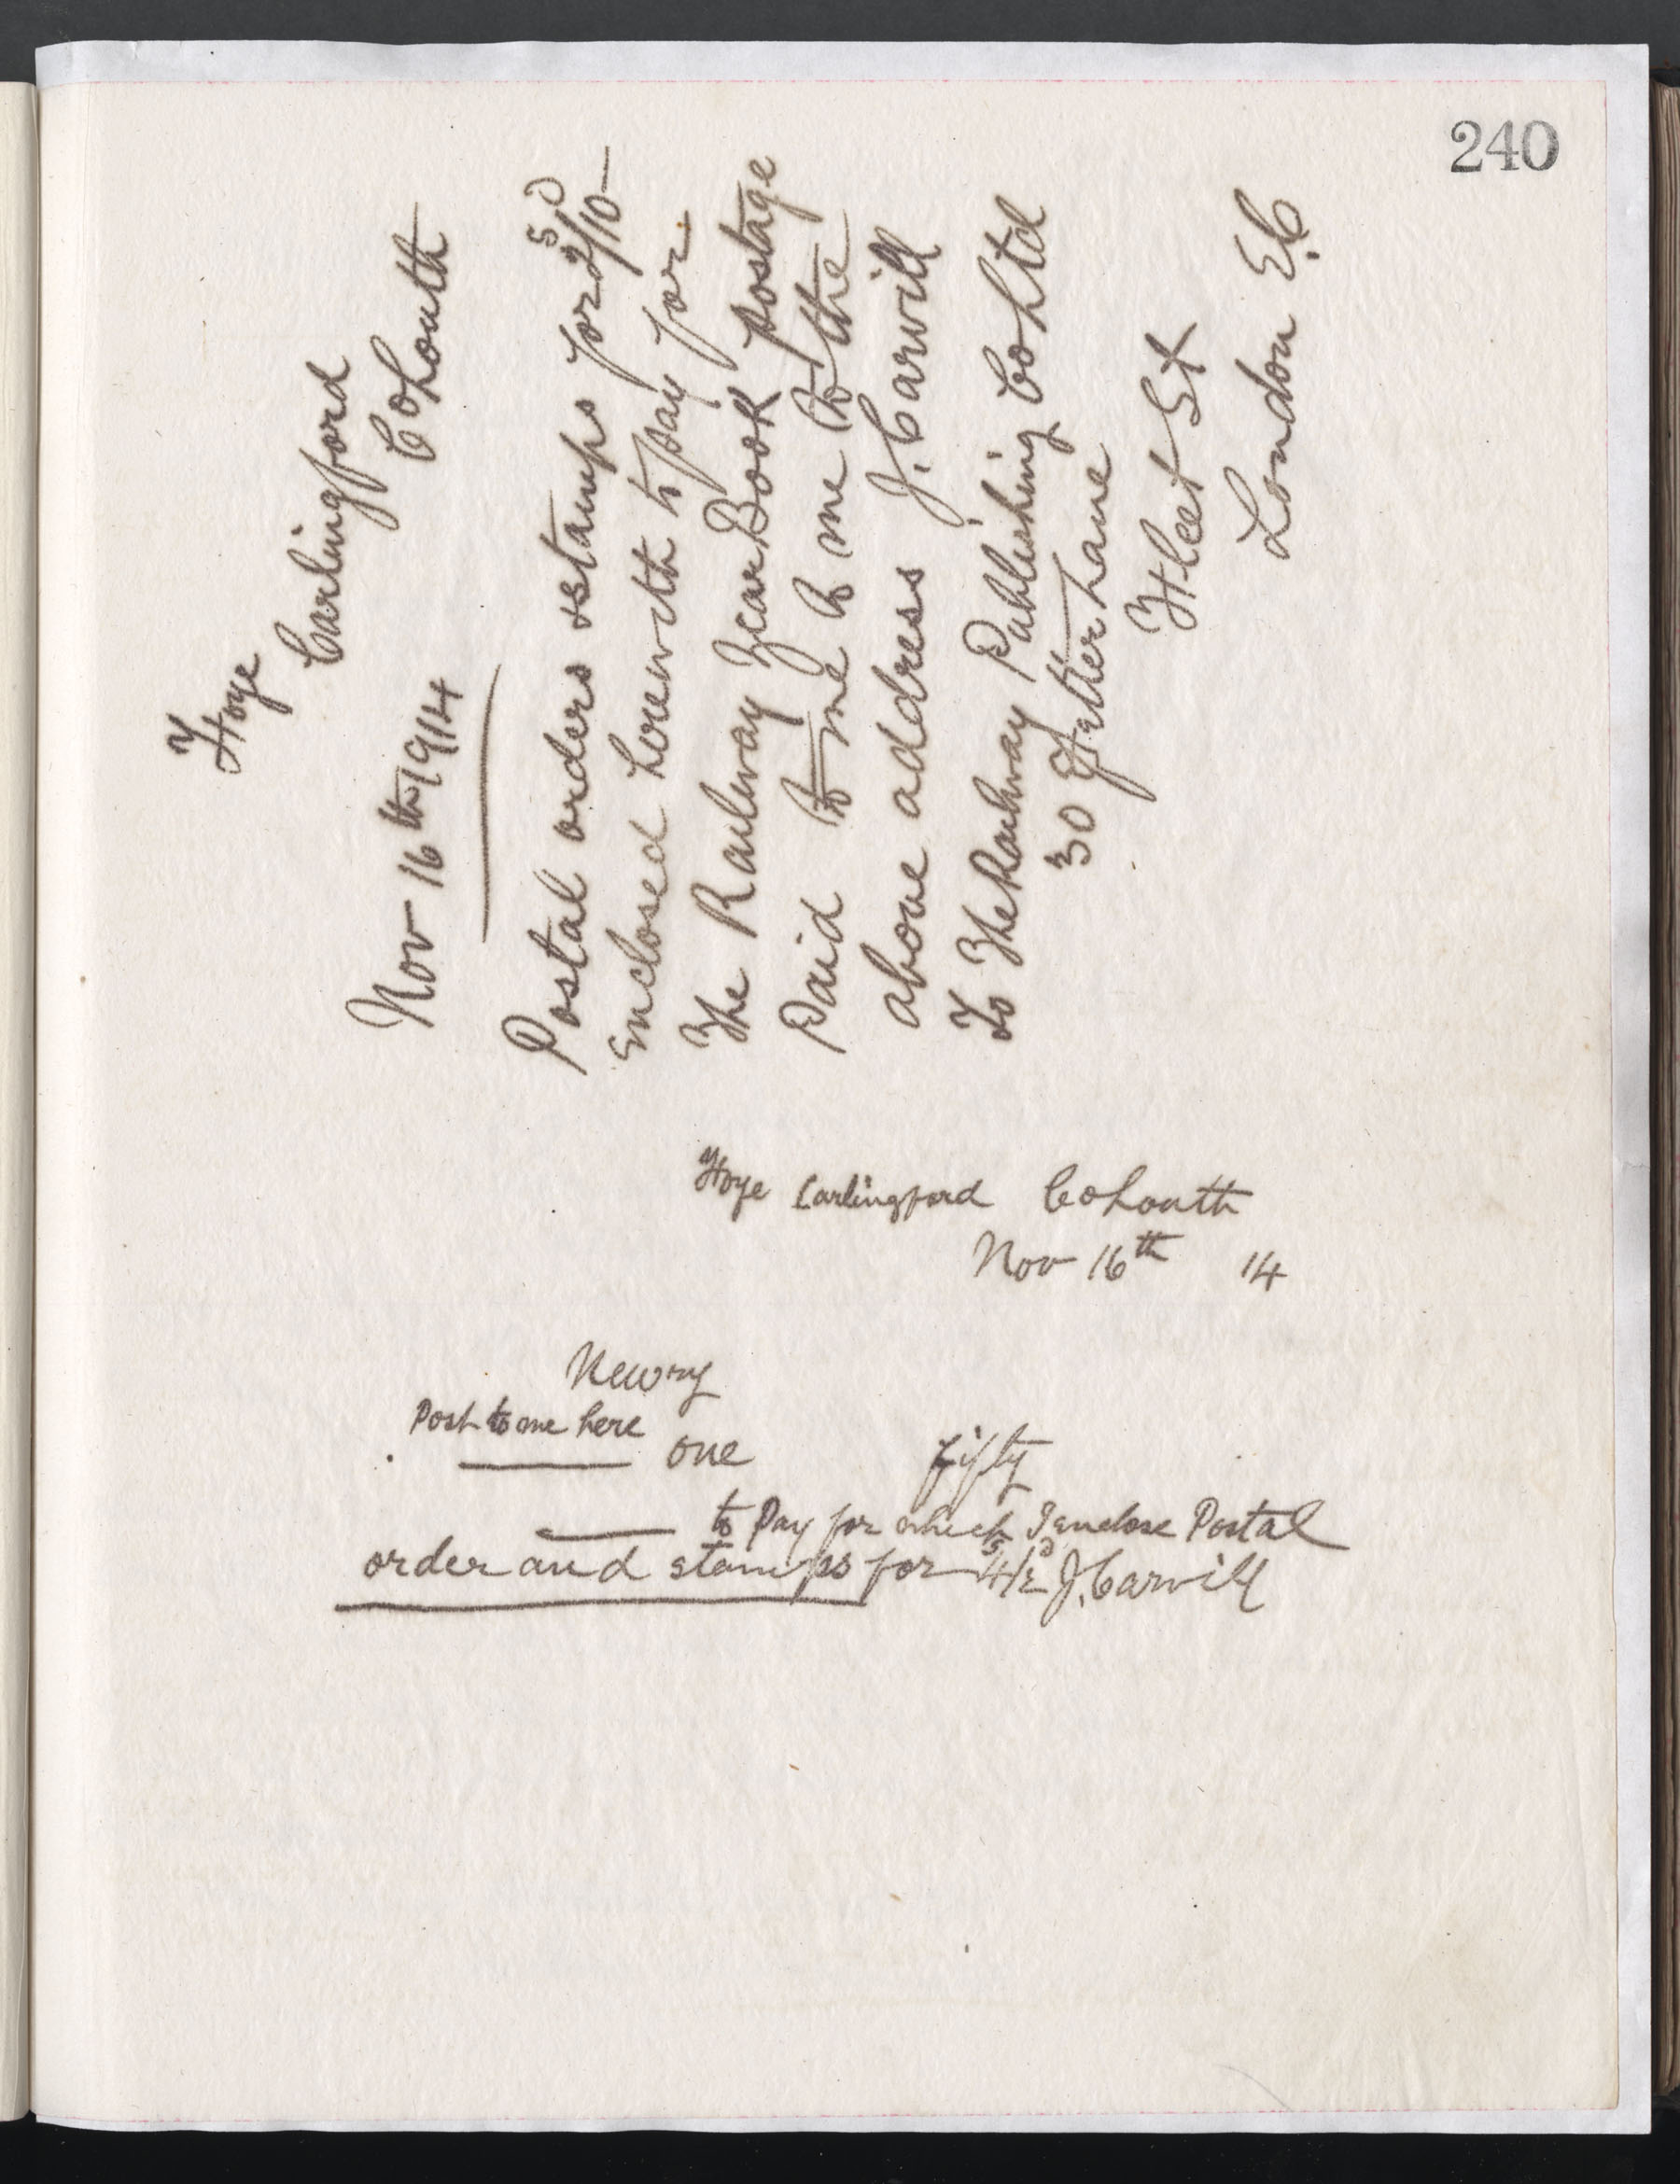 240
Foye
Carlingford
Co Louth
Nov 16th 1914
Postal orders & stamps for 2s/10d
Enclosed herewith to pay for
The Railway Year Book postage
Paid to me to me to the
above address J. Carvill
To The Railway Publishing Co Ltd
30 Fetter Lane
Fleet St
London E.C
Foye Carlingford Co Louth
Nov 16th 14
Newry
Post to me here
one fifty
to Pay for which I enclose Postal
order and stamps for 4s/2d J. Carvill